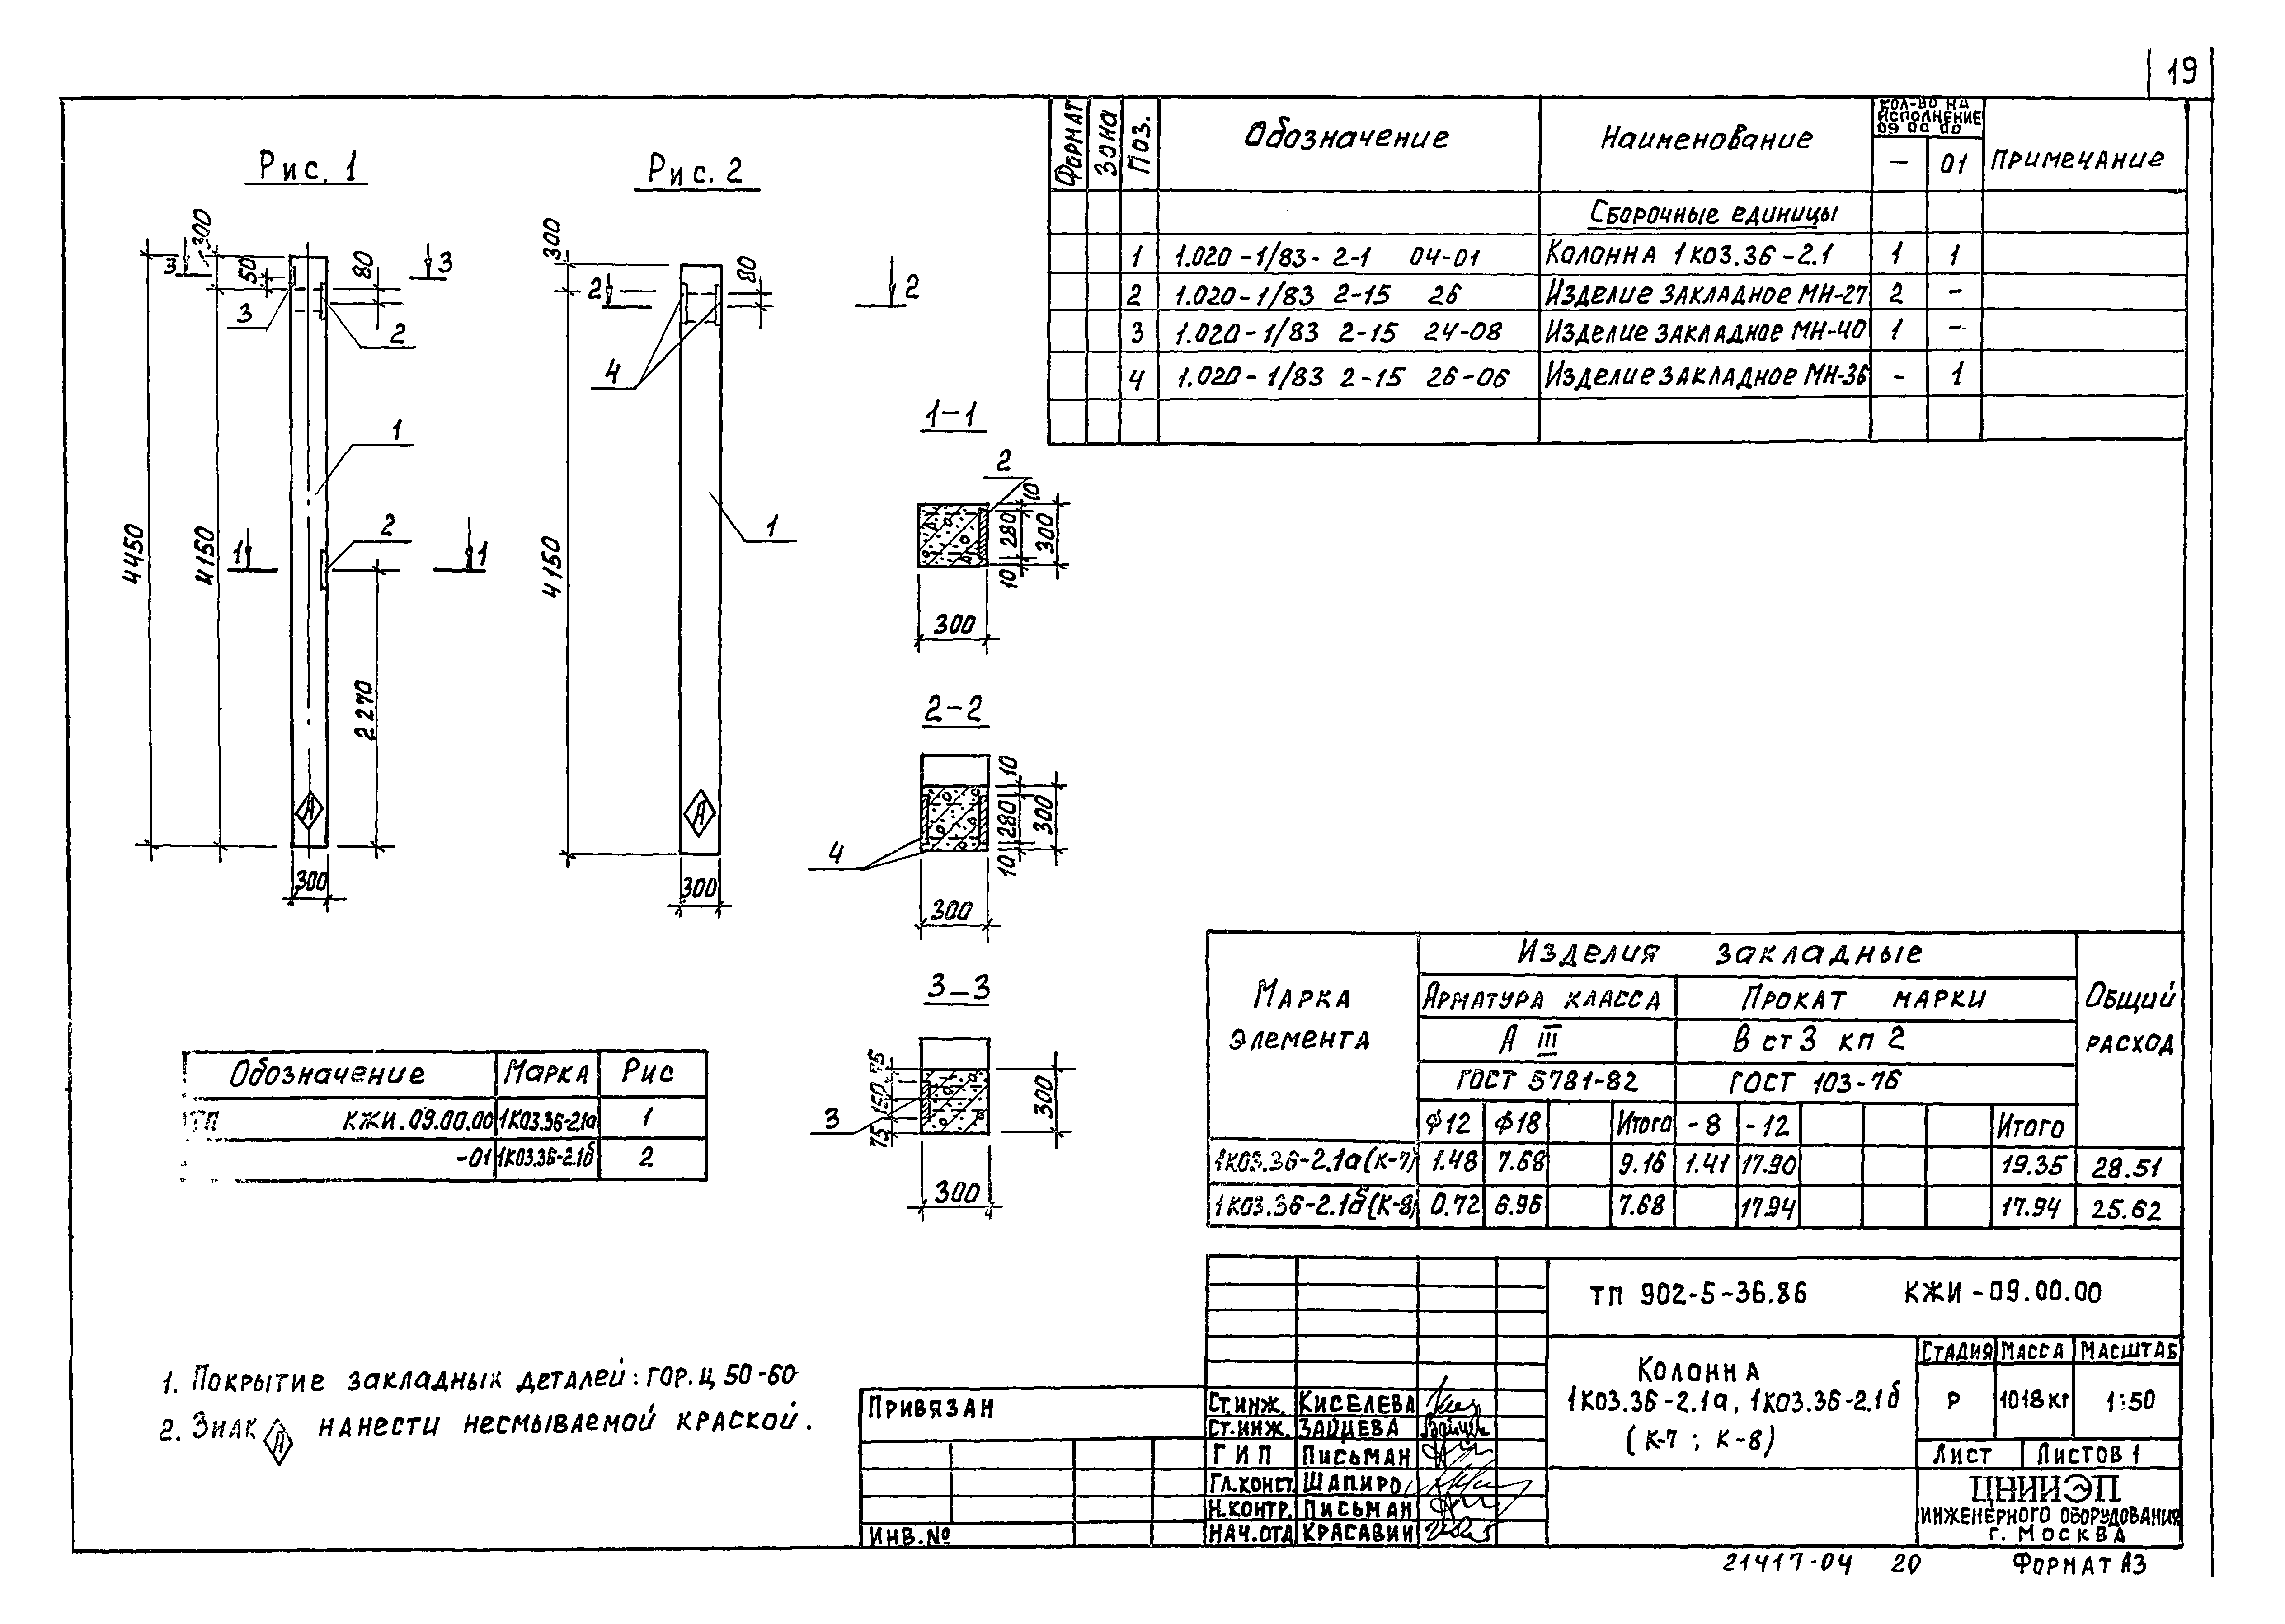 19
Рис. 1
Рис. 2
300
50
80
3
3
3
2
1
2
1
1
4450
4150
2270
А
300
300
80
2
2
4
1
4150
А
300
1-1
2
10
280
10
300
300
2-2
10
280
10
300
4
300
3-3
75
150
75
300
3
300
Формат
Зона
Поз.
Обозначение
Наименование
Кол-во на исполнение 09 00 00
-
01
Примечание
Сборочные единицы
1 1.020-1/83- 2-1 04-01 Колонна 1КО3.36-2.1 1 1
2 1.020-1/83 2-15 26 Изделие закладное МН-27 2 -
3 1.020-1/83 2-15 24-08 Изделие закладное МН-40 1 -
4 1.020-1/83 2-15 26-06 Изделие закладное МН-36 - 1
Обозначение Марка Рис
ТП КЖИ.09.00.00 1КО3.36-2.1а 1
-01 1КО3.36-2.1б 2
Марка элемента
Изделия закладные
Общий расход
Арматура класса
Прокат марки
А III
В ст3 кп 2
ГОСТ 5781-82
ГОСТ 103-76
ф12 ф18 Итого -8 -12 Итого
1КО3.36-2.1а (К-7) 1.48 7.68 9.16 1.41 17.90 19.35 28.51
1КО3.36-2.1б (К-8) 0.72 6.96 7.68 17.94 17.94 25.62
1. Покрытие закладных деталей: гор. Ц 50-60
2. Знак А нанести несмываемой краской.
Привязан
Инв.№
Ст.инж. Киселева
Ст.инж. Зайцева
ГИП Письман
Гл.конст. Шапиро
Н.контр. Письман
Нач.отд Красавин
ТП 902-5-36.86 КЖИ-09.00.00
Колонна
1КО3.36-2.1а, 1КО3.36-2.1б
(К-7; К-8)
Стадия Масса Масштаб
Р 1018кг 1:50
Лист Листов 1
ЦНИИЭП
инженерного оборудования
г. Москва
21417-04 20 Формат А3